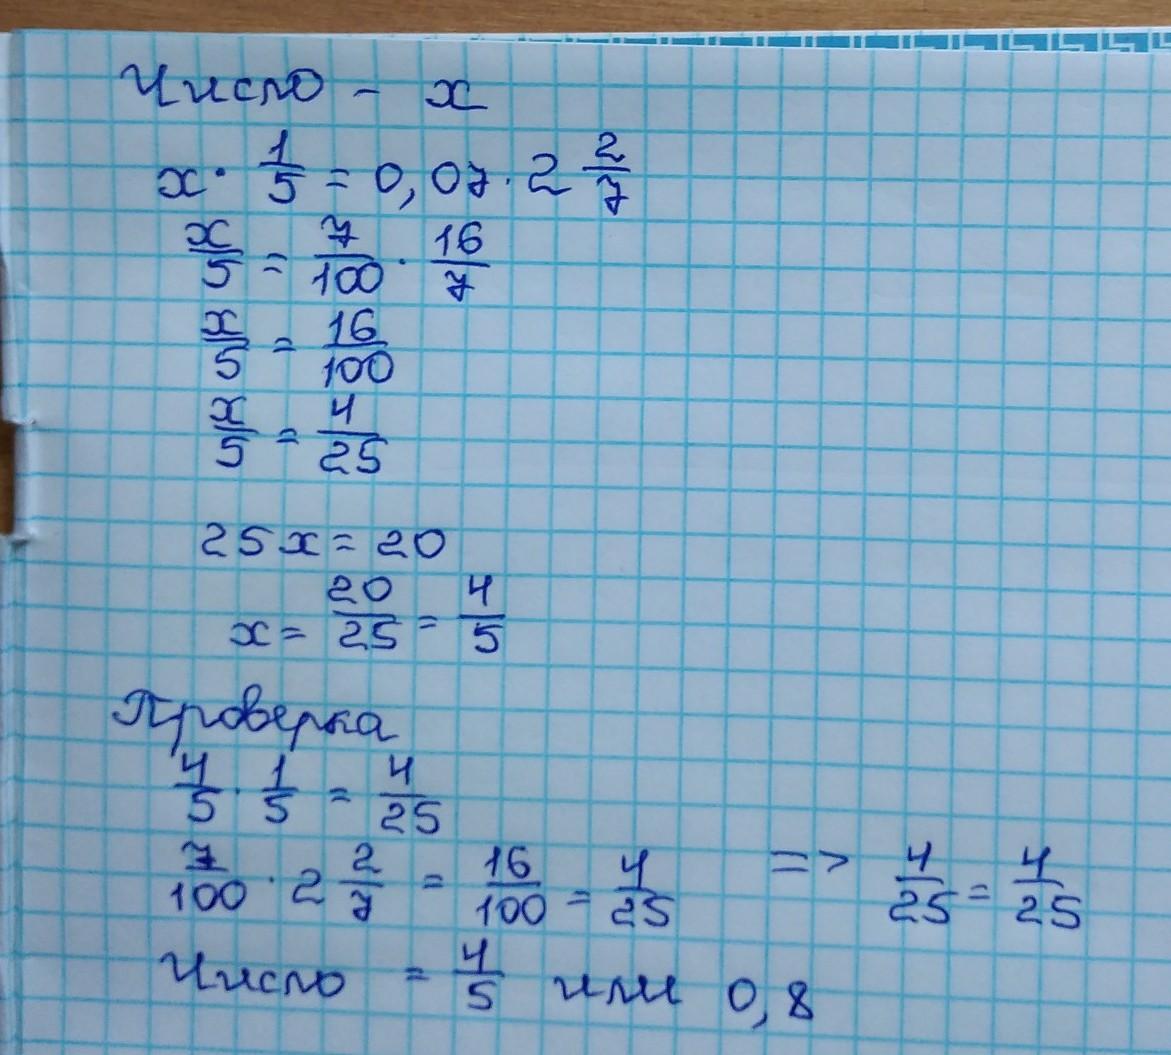 Число - x
x · 1/5 = 0,07 · 2 2/7
x/5 = 7/100 · 16/7
x/5 = 16/100
x/5 = 4/25
25x = 20
x = 20/25 = 4/5
Проверка
4/5 · 1/5 = 4/25
7/100 · 2 2/7 = 16/100 = 4/25 => 4/25 = 4/25
Число = 4/5 или 0,8